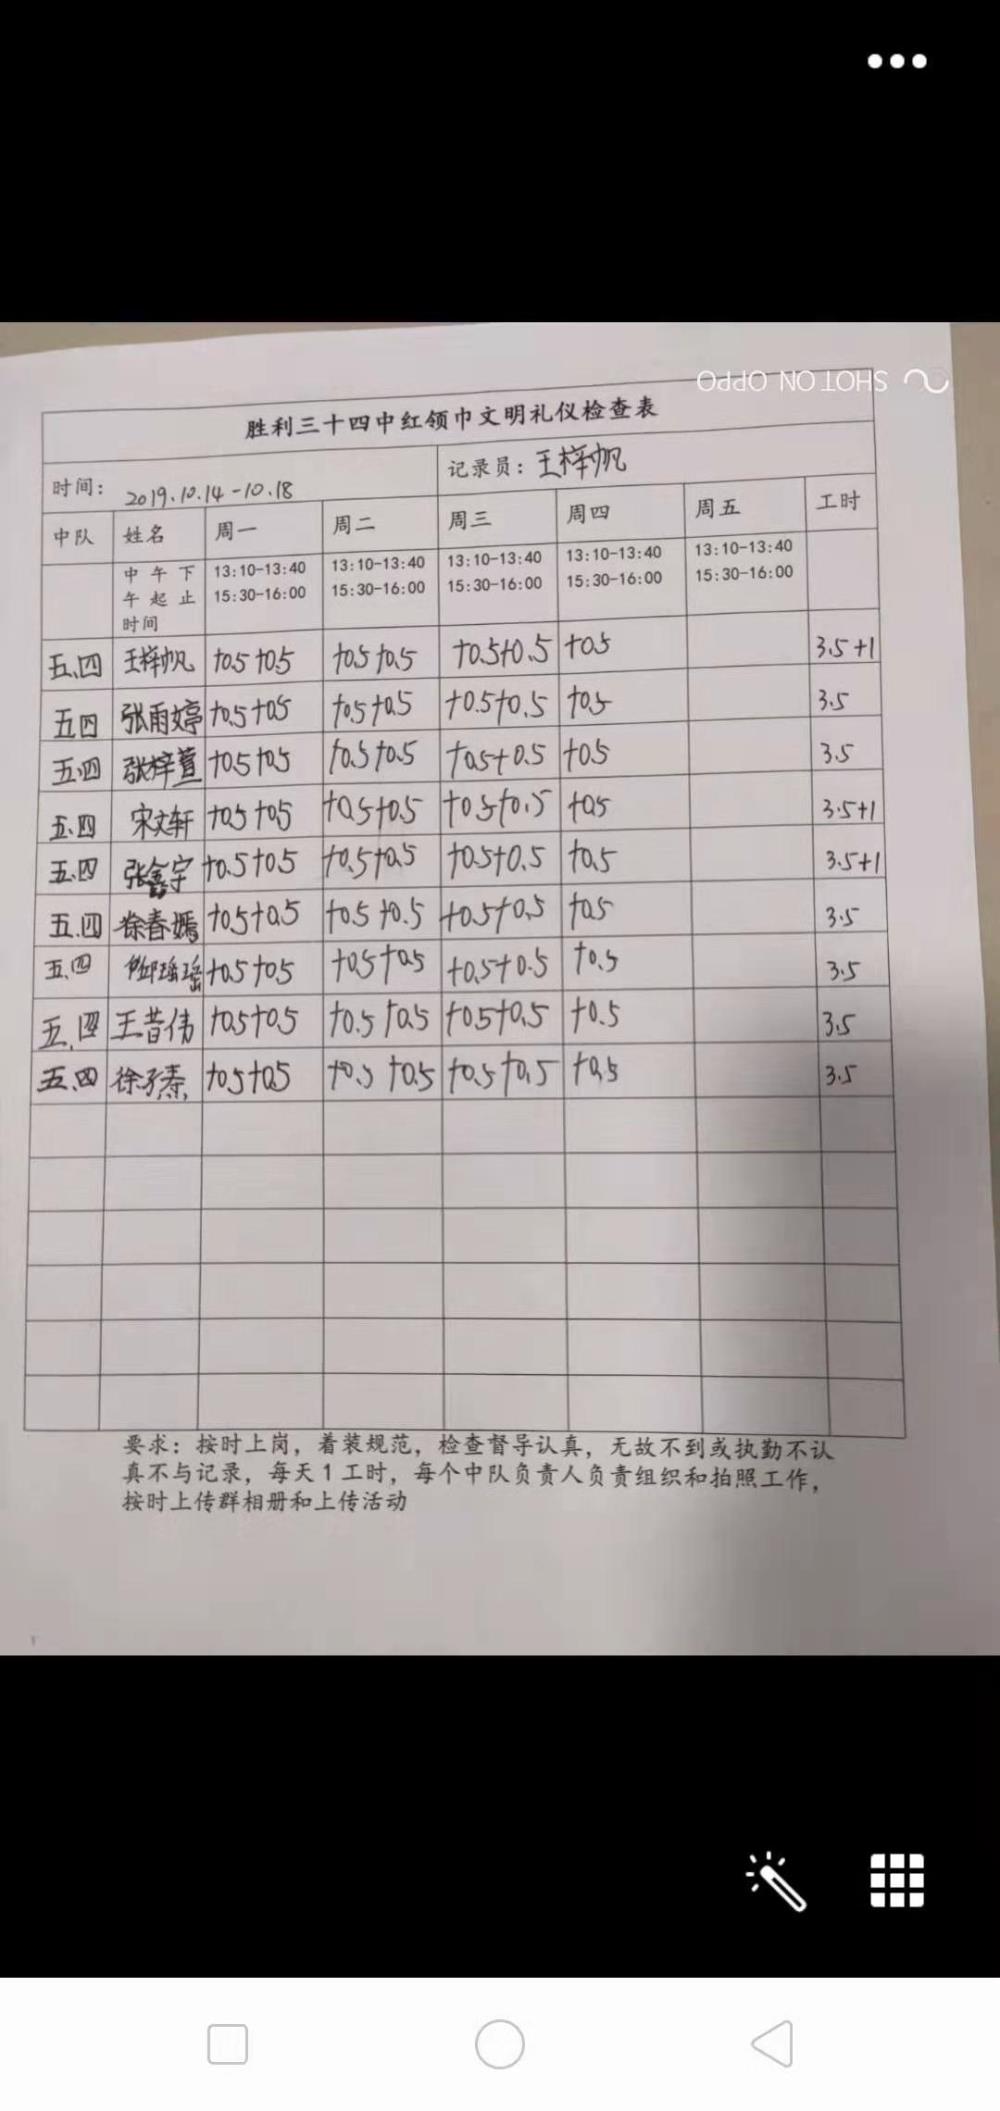 SHOT ON OPPO
胜利三十四中红领巾文明礼仪检查表
时间： 2019.10.14-10.18 记录员：王梓帆
中队 姓名 周一 周二 周三 周四 周五 工时
中午下午起止时间 13:10-13:40 15:30-16:00 13:10-13:40 15:30-16:00 13:10-13:40 15:30-16:00 13:10-13:40 15:30-16:00 13:10-13:40 15:30-16:00
五.四 王梓帆 +0.5+0.5 +0.5+0.5 +0.5+0.5 +0.5 3.5+1
五四 张雨婷 +0.5+0.5 +0.5+0.5 +0.5+0.5 +0.5 3.5
五.四 张梓萱 +0.5+0.5 +0.5+0.5 +0.5+0.5 +0.5 3.5
五.四 宋文轩 +0.5+0.5 +0.5+0.5 +0.5+0.5 +0.5 3.5+1
五.四 张鑫宇 +0.5+0.5 +0.5+0.5 +0.5+0.5 +0.5 3.5+1
五.四 徐春嫣 +0.5+0.5 +0.5+0.5 +0.5+0.5 +0.5 3.5
五.四 +0.5+0.5 +0.5+0.5 +0.5+0.5 +0.5 3.5
五.四 王昔伟 +0.5+0.5 +0.5+0.5 +0.5+0.5 +0.5 3.5
五.四 +0.5+0.5 +0.5+0.5 +0.5+0.5 +0.5 3.5
要求：按时上岗，着装规范，检查督导认真，无故不到或执勤不认
真不与记录，每天1工时，每个中队负责人负责组织和拍照工作，
按时上传群相册和上传活动